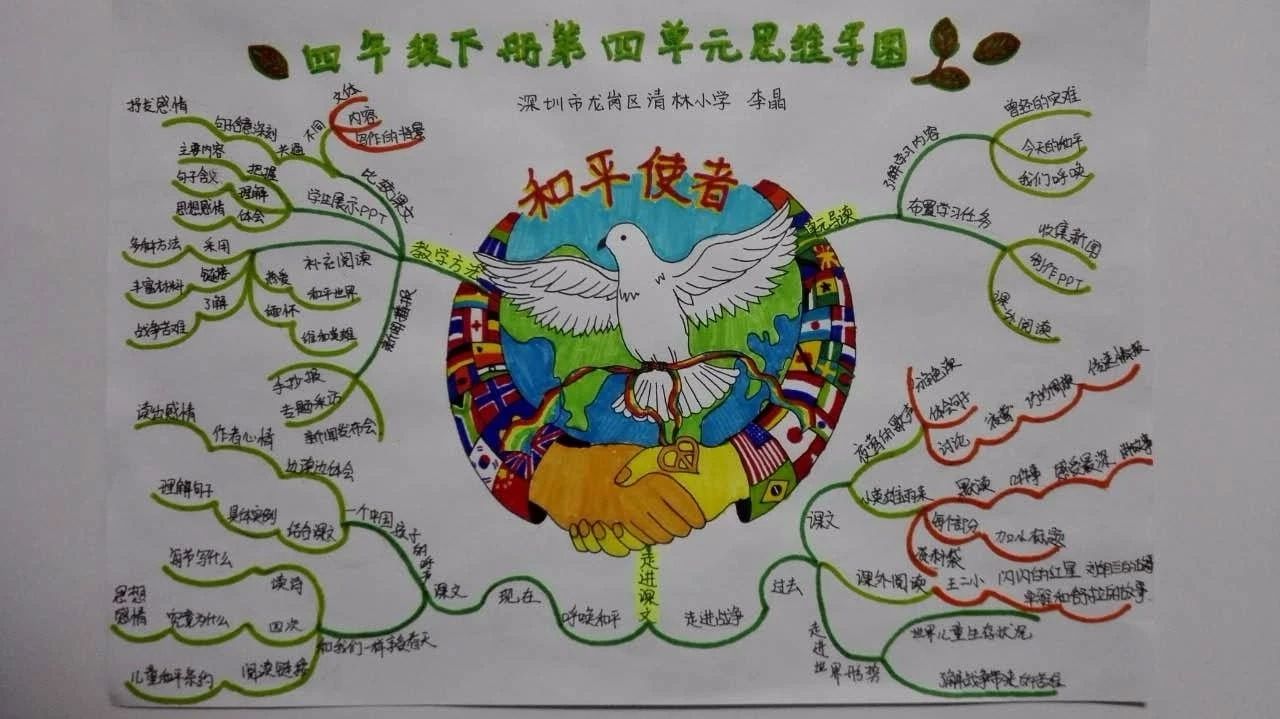 四年级下册第四单元思维导图
深圳市龙岗区清林小学 李晶
和平使者
教学方法
比较课文
不同
文体
内容
写作的背景
共通
句子含意深刻
抒发感情
学生展示PPT
把握
主要内容
理解
句子含义
体会
思想感情
补充阅读
采用
多种方法
链接
丰富材料
了解
战争苦难
热爱
和平世界
缅怀
维和英雄
新闻播报
手抄报
专题采访
新闻发布会
单元导读
了解学习内容
曾经的灾难
今天的和平
我们呼唤
布置学习任务
收集新闻
制作PPT
课外阅读
走进课文
呼唤和平
现在
课文
一个中国孩子的呼声
边读边体会
作者心情
读出感情
结合课文
具体实例
理解句子
和我们一样享受春天
读诗
每节写什么
四次
究竟为什么
思想感情
阅读链接
儿童和平条约
走进战争
过去
课文
夜莺的歌声
角色读
体会句子
讨论
夜莺
巧妙周旋
传递情报
小英雄雨来
默读
几件事
感受最深
讲故事
每个部分
加小标题
资料袋
课外阅读
王二小
闪闪的红星
走进世界形势
世界儿童生存状况
了解战争带来的苦难